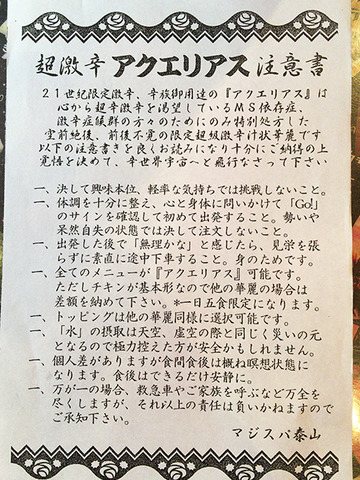 超激辛 アクエリアス 注意書
21世紀限定激辛、辛族御用達の『アクエリアス』は
心から超辛激辛を渇望しているＭＳ依存症、
激辛症候群の方々のためにのみ特別処方した
空前絶後、前後不覚の限定超級激辛汁状華麗です
以下の注意書きを良くお読みになり十分にご納得の上
覚悟を決めて、辛世界宇宙へと飛行なさって下さい
一、決して興味本位、軽率な気持ちでは挑戦しないこと。
一、体調を十分に整え、心と身体に問いかけて「Go!」
のサインを確認して初めて出発すること。勢いや
呆然自失の状態では決して注文しないこと。
一、出発した後で「無理かな」と感じたら、見栄を張
らずに素直に途中下車すること。身のためです。
一、全てのメニューが『アクエリアス』可能です。
ただしチキンが基本形なので他の華麗の場合は
差額を納めて下さい。*一日五食限定になります。
一、トッピングは他の華麗同様に選択可能です。
一、「水」の摂取は天空、虚空の際と同じく災いの元
となるので極力控えた方が安全かもしれません。
一、個人差がありますが食間食後は概ね瞑想状態に
なります。食後はできるだけ安静に。
一、万が一の場合、救急車やご家族を呼ぶなど万全を
尽くしますが、それ以上の責任は負いかねますので
ご承知下さい。
マジスパ泰山